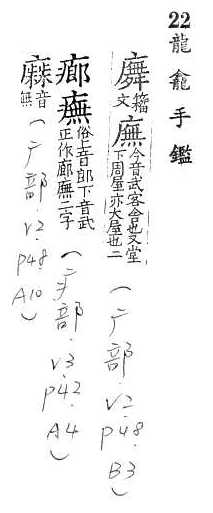 22 龍龕手鑑
籀文 廡 今音武客舍也又堂下周屋亦大屋也二 (广部.v2.p48.B3)
俗上音郎下音武正作廊廡二字 (疒部.v3.p42.A4)
音無 (广部.v2.p48.A10)